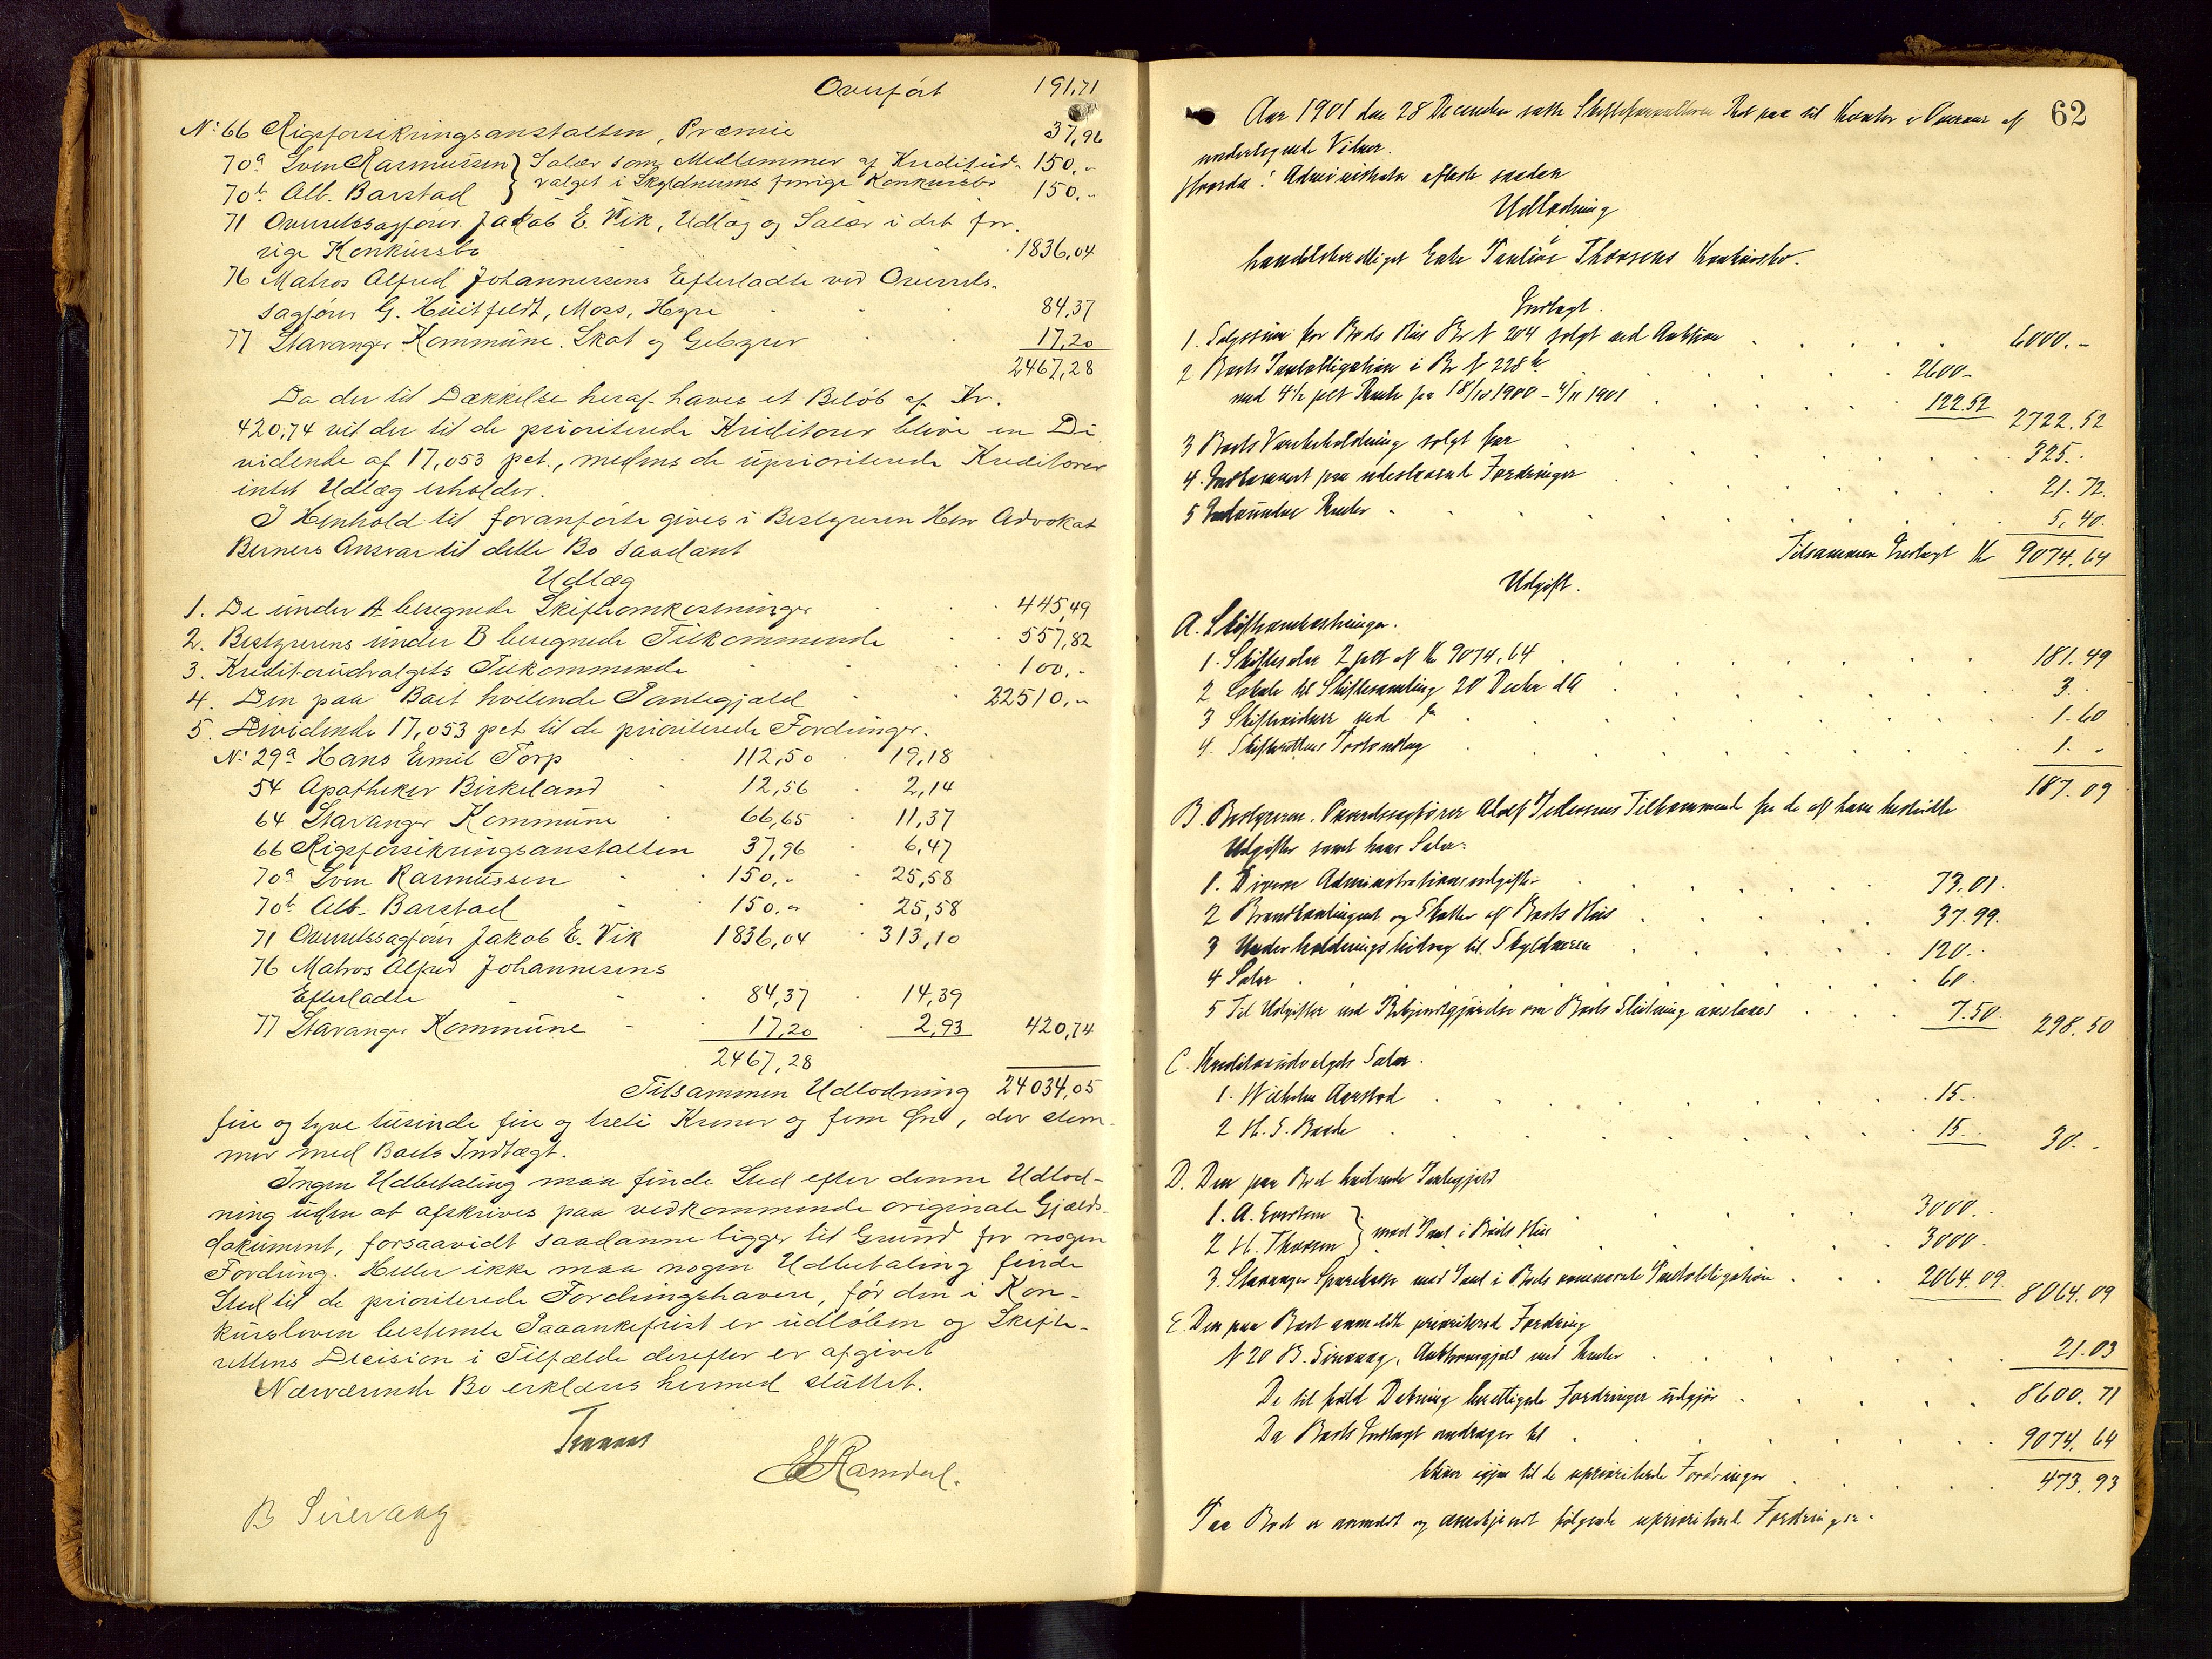 Overført 191,71
No 66 Rigsforsikringsanstalten, Præmie 37,96
70a Sven Rasmussen } Salær som Medlemmer af Kreditud- 150,-
70b Alb. Barstad } valget i Skyldnerens forrige Konkursbo 150,-
71 Overretssagfører Jakob E. Vik, Udlæg og Salær i det for-
rige Konkursbo 1836,04
76 Matros Alfred Johannessens Efterladte ved Overrets-
sagfører G. Huitfeldt, Moss, Hyre 84,37
77 Stavanger Kommune. Skat og Gebyrer 17,20
2467,28
Da der til Dækkelse heraf haves et Beløb af Kr.
420,74 vil der til de prioriterede Kreditorer blive en Di-
vidende af 17,053 pct., medens de uprioriterede Kreditorer
intet Udlæg erholder.
I Henhold til foranførte gives i Bestyreren Herr Advokat
Berners Ansvar til dette Bo saadant
Udlæg
1. De under A beregnede Skifteomkostninger 445,49
2. Bestyrerens under B beregnede Tilkommende 557,82
3. Kreditorudvalgets Tilkommende 100,-
4. Den paa Boet hvilende Pantegjæld 22510,-
5. Dividende 17,053 pct til de prioriterede Fordringer.
No 29a Hans Emil Torp 112,50 19,18
54 Apotheker Birkeland 12,56 2,14
64 Stavanger Kommune 66,65 11,37
66 Rigsforsikringsanstalten 37,96 6,47
70a Sven Rasmussen 150,- 25,58
70b Alb. Barstad 150,- 25,58
71 Overretssagfører Jakob E. Vik 1836,04 313,10
76 Matros Alfred Johannesens
Efterladte 84,37 14,39
77 Stavanger Kommune 17,20 2,93 420,74
2467,28
Tilsammen Udlodning 24034,05
fire og tyve tusinde fire og treti Kroner og fem Øre, der stem-
mer med Boets Indtægt.
Ingen Udbetaling maa finde Sted efter denne Udlod-
ning uden at afskrives paa vedkommende originale Gjælds-
dokument, forsaavidt saadanne ligger til Grund for nogen
Fordring. Heller ikke maa nogen Udbetaling finde
Sted til de prioriterede Fordringshavere, før den i Kon-
kursloven bestemte Paaankefrist er udløben og Skifte-
rettens Decision i Tilfælde derefter er afgivet
Nærværende Bo erklæres hermed sluttet.
Ramdal.
B Sirevaag
62
Aar 1901 den 28 December satte Skifteforvalteren Ret paa sit Kontor i Overvær af
undertegnede Vidner.
Hvorda: Administrator afleste saaden
Udlodning
i
handelsberettiget Enke Pauline Thorsens Konkursbo.
Indtægt.
1. Salgssum for Boets Hus Br № 204 solgt ved Auktion 6000.-
2 Boets Panteobligation i Br № 228b 2600-
med 4½ pct Rente fra 18/10 1900 - 4/11 1901 122.52 2722.52
3 Boets Varebeholdning solgt for 325.-
4. Indkommet paa udestaaende Fordringer 21.72.
5 Indvundne Renter 5,40.
Tilsammen Indtægt Kr 9074.64
Udgift.
A. Skifteomkostninger.
1. Skiftesalær 2 pct af Kr 9074,64 181.49
2 Lokale til Skiftesamling 20 Decbr d A 3.-
3 Skiftevidner ved do 1.60
4. Skifterettens Portoudlæg 1.-
187.09
B. Bestyreren, Overretssagfører Adolf Pedersens Tilkommende for de af ham bestridte
Udgifter samt hans Salær:
1. Diverse Administrationsudgifter 73,01.
2 Brandkontingent og Skatter af Boets Hus 37.99.
3 Underholdningsbidrag til Skyldneren 120.-
4 Salær 60.
5 Til Udgifter ved Bekjendtgjørelse om Boets Slutning ansættes 7.50. 298.50
C. Kreditorudvalgets Salær.
1. Wilhelm Aarstad 15.-
2 H. S. Baade 15.- 30.-
D. Den paa Boet hvilende Pantegjæld
1. A. Evertsen } 3000.-
2 H. Thorsen } med Pant i Boets Hus 3000.
3. Stavanger Sparekasse med Pant i Boets ovennævnte Panteobligation 2064.09. 8064.09
E. Den paa Boet anmeldte prioriterede Fordring
№ 20 B. Sirevaag, Auktionsgjæld med Renter 21.03
De til fuld Dækning berettigede Fordringer udgjør 8600.71
Da Boets Indtægt andrager til 9074.64
bliver igjen til de uprioriterede Fordringer 473.93
Paa Boet er anmeldt og anerkjendt følgende uprioriterede Fordringer: